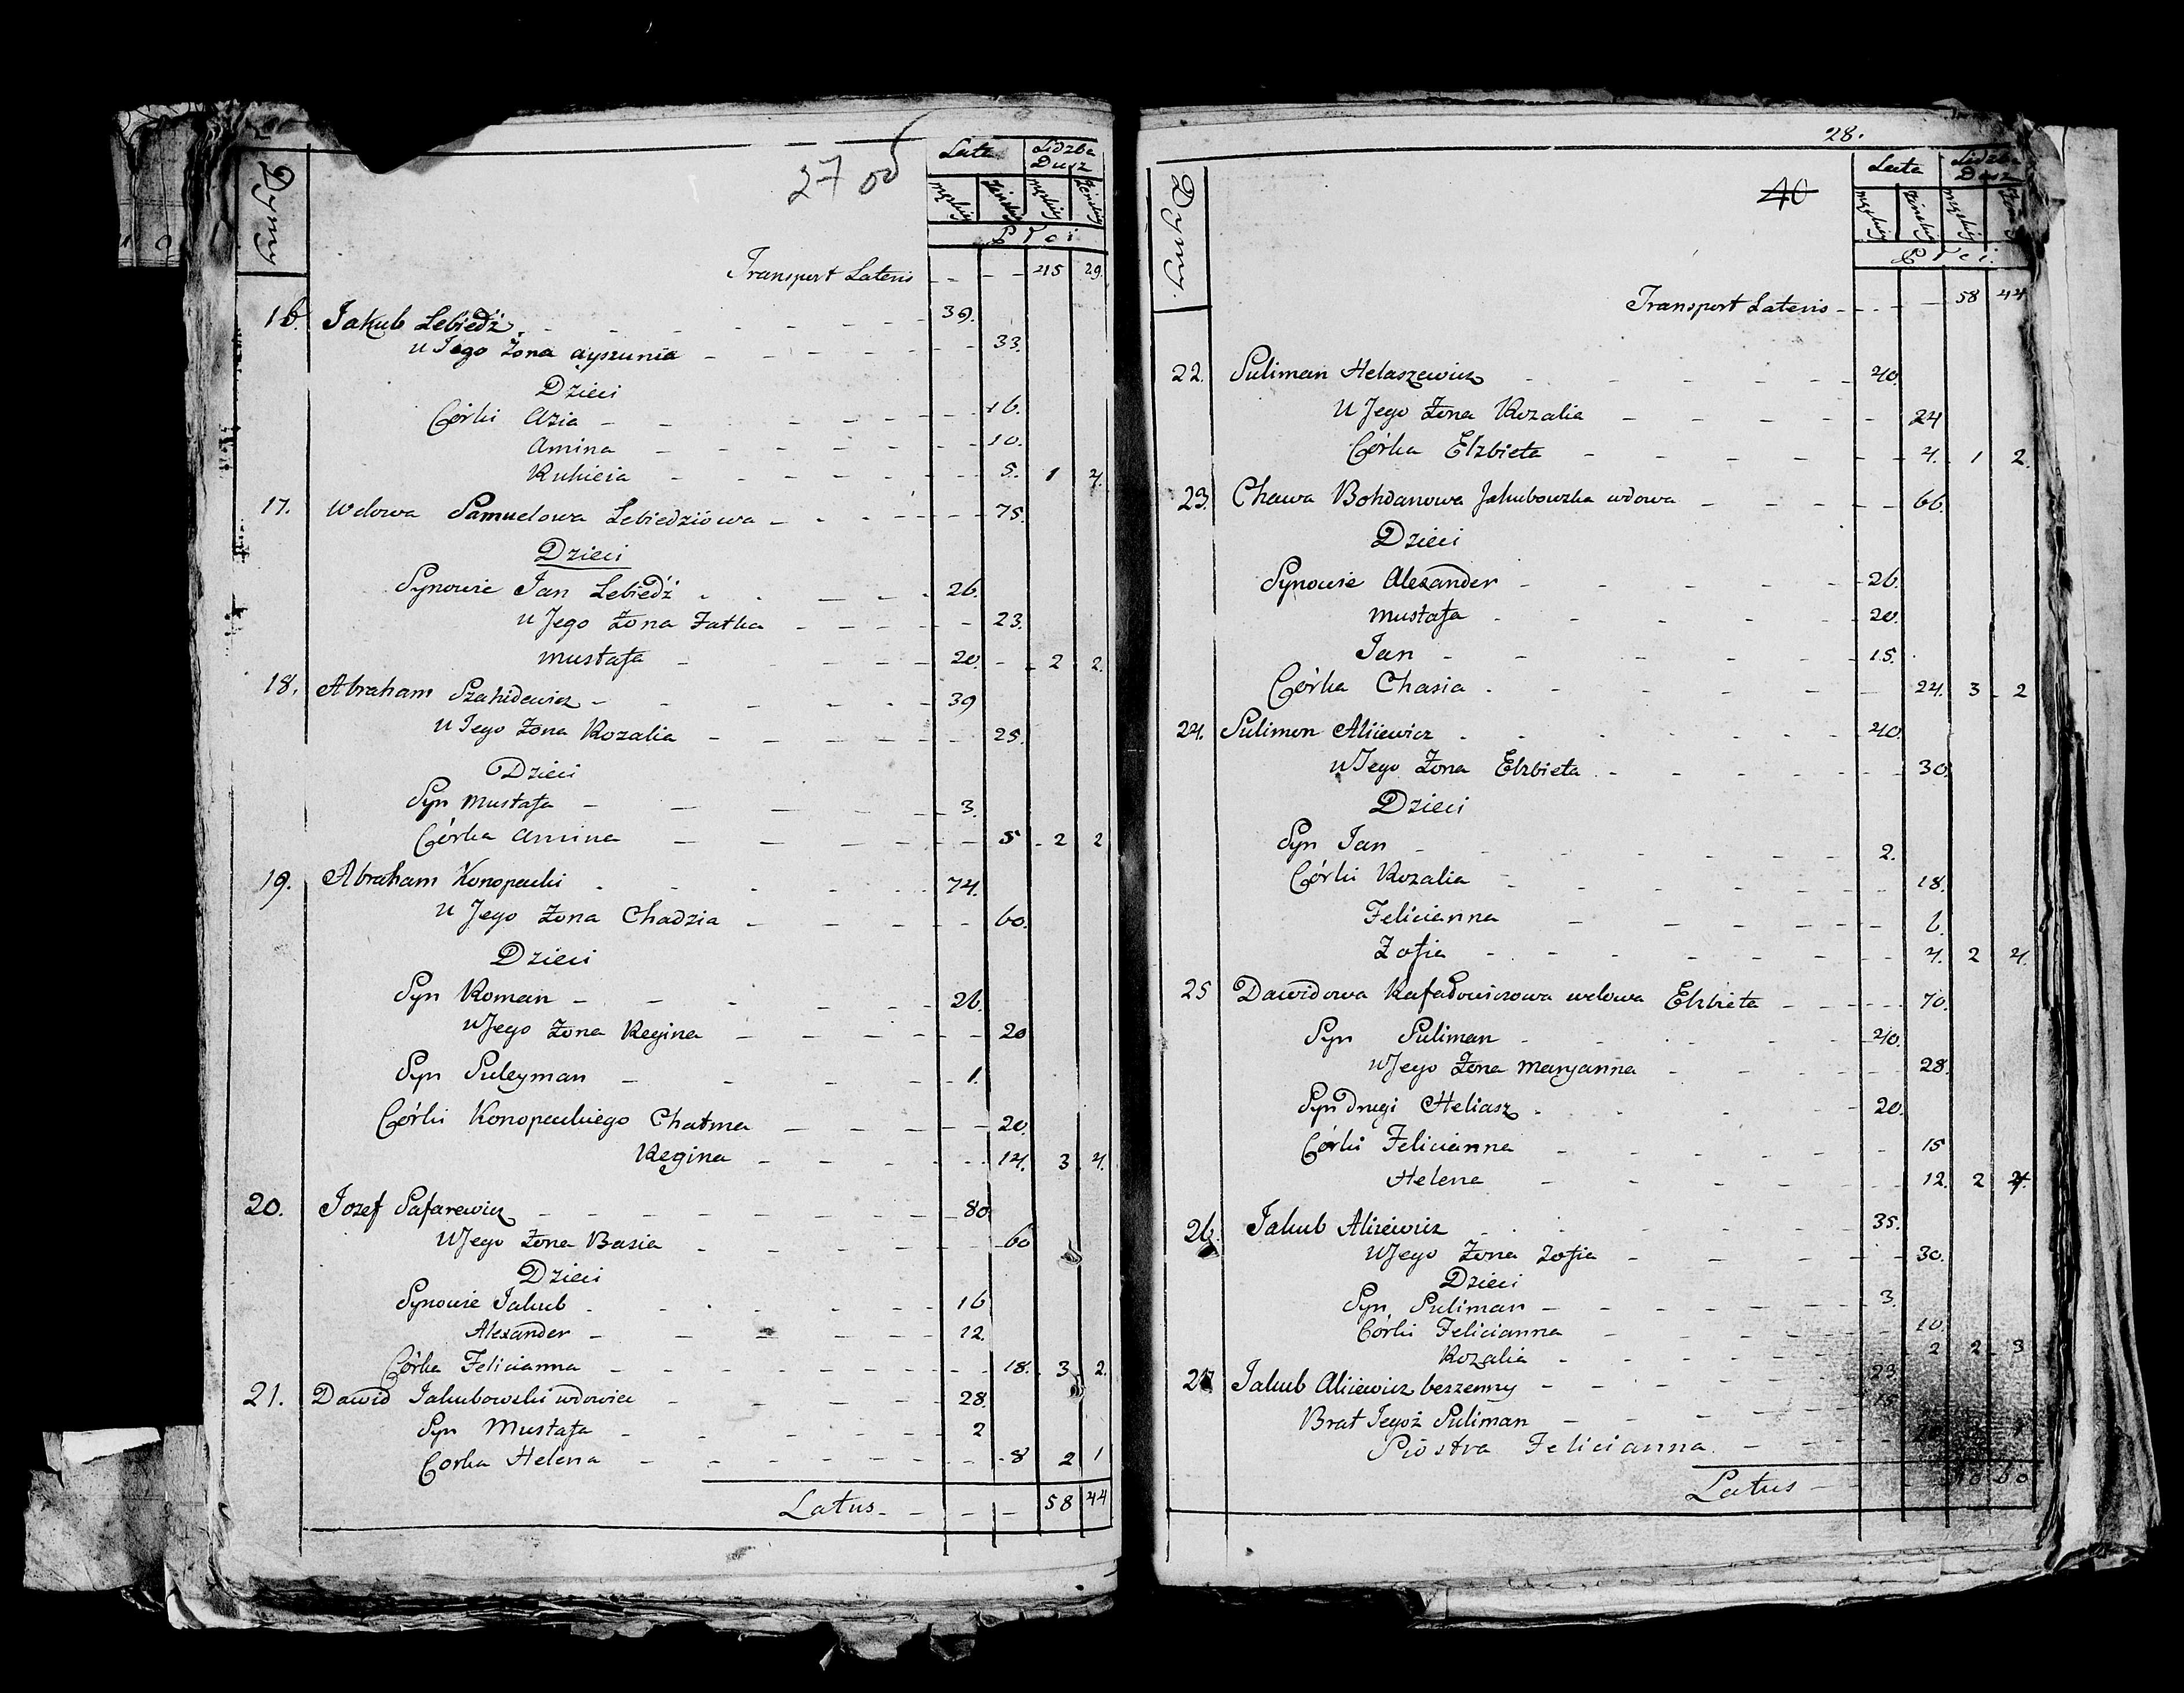 27 об
Dymy
Lata
Lidzba Dusz
męzkiey
żeńskiey
męzkiey
żeńskiey
Płci
Transport Lateris - - - 45 29.
16. Jakub Lebiedź - - - 39.
u Jego Żona Ayszunia - - - 33.
Dzieci
Córki Azia - - - 16.
Amina - - - 10.
Kuhieia - - - 5. 1 4.
17. Wdowa Samuelowa Lebiedziowa - - - 75.
Dzieci
Synowie Jan Lebiedź - - - 26.
u Jego Żona Fatka - - - 23.
Mustafa - - - 20. - 2 2.
18. Abraham Szahidewicz - - - 39
u Jego Żona Rozalia - - - 25.
Dzieci
Syn Mustafa - - - 3.
Córka Amina - - - 5 - 2 2
19. Abraham Konopacki - - - 74.
u Jego Żona Chadzia - - - 60.
Dzieci
Syn Roman - - - 26.
u Jego Żona Regina - - - 20
Syn Suleyman - - - 1.
Córki Konopackiego Chatma - - - 20.
Regina - - - 14. 3 4.
20. Jozef Safarewicz - - - 80
u Jego Żona Basia - - - 60
Dzieci
Synowie Jakub - - - 16
Alexander - - - 12.
Córka Felicianna - - - 18. 3 2.
21. Dawid Jakubowski wdowiec - - - 28.
Syn Mustafa - - - 2
Corka Helena - - - 8 2 1
Latus - - - 58 44
28.
40
Dymy
Lata
Lidzba Dusz
męzkiey
żeńskiey
męzkiey
Płci
Transport Lateris - - - 58 44
22. Suliman Helaszewicz - - - 40.
u Jego Żona Rozalia - - - 24
Córka Elzbieta - - - 4. 1 2.
23. Chawa Bohdanowa Jakubowska wdowa - - - 66.
Dzieci
Synowie Alexander - - - 26.
Mustafa - - - 20.
Jan - - - 15.
Córka Chasia - - - 24. 3 2
24. Sulimon Aliiewicz - - - 40.
u Jego Żona Elzbieta - - - 30.
Dzieci
Syn Jan - - - 2.
Córki Rozalia - - - 18.
Felicianna - - - 6.
Zofia - - - 4. 2 4.
25 Dawidowa Rafałowiczowa wdowa Elzbieta - - - 70.
Syn Suliman - - - 40.
u Jego Żona Maryanna - - - 28.
Syn drugi Heliasz - - - 20.
Córki Felicianna - - - 15
Helena - - - 12. 2 4.
26. Jakub Aliiewicz - - - 35.
u Jego Żona Zofia - - - 30.
Dzieci
Syn Suliman - - - 3.
Córki Felicianna - - - 10.
Rozalia - - - 2 2 3
27 Jakub Aliiewicz bezzenny - - - 23
Brat Jegoż Suliman - - - 18
Siostra Felicianna - - -
Latus - - - 60